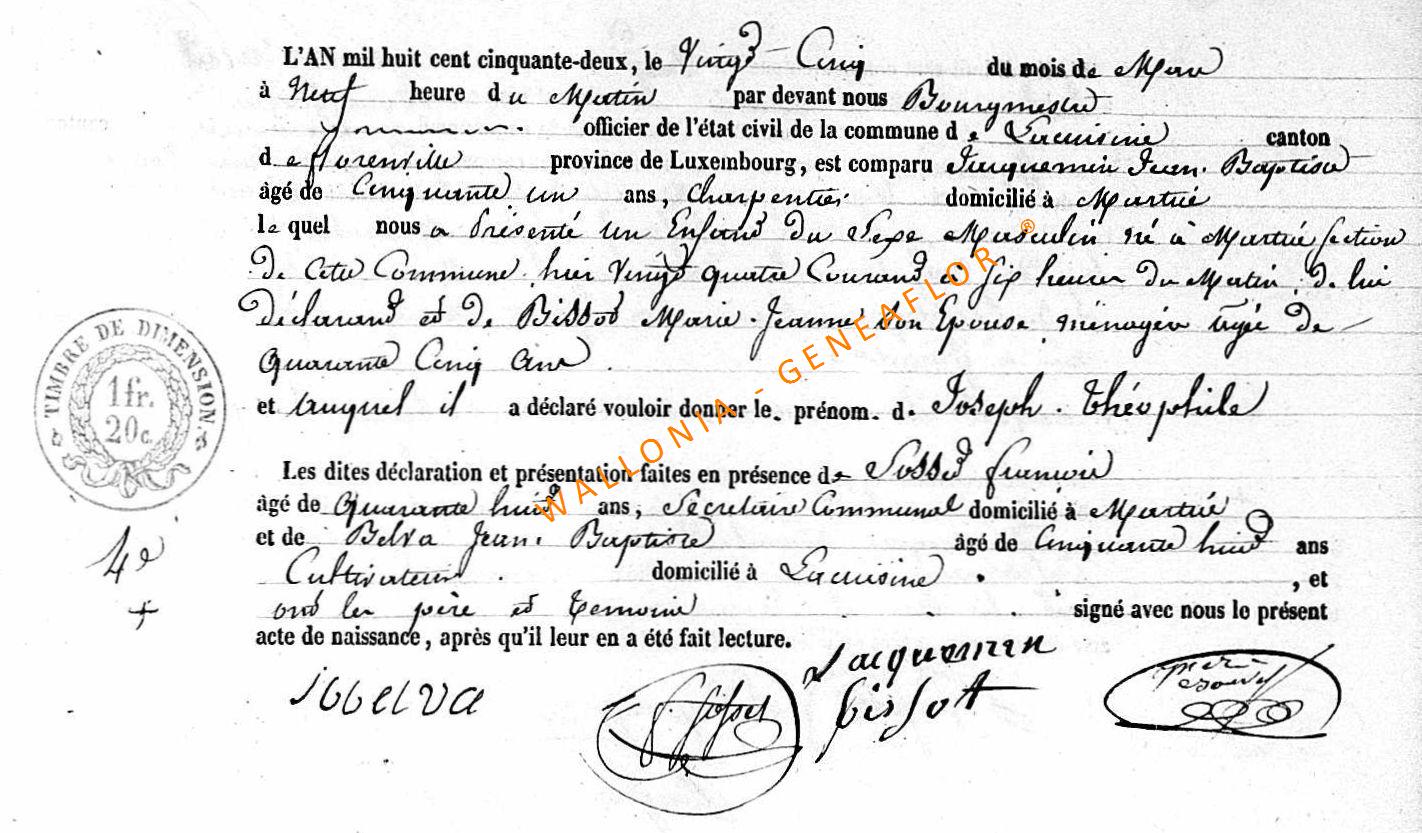 L'AN mil huit cent cinquante-deux, le Vingt-Cinq du mois de Mars
à Neuf heure du Matin par devant nous Bourgmestre
officier de l'état civil de la commune de Lacuisine canton
de florenville province de Luxembourg, est comparu Jacquemin Jean Baptiste
âgé de Cinquante un ans, Charpentier domicilié à Martué
le quel nous a Présenté un Enfant du Sexe Masculin né à Martué Section
de Cette Commune hier Vingt quatre Courant à six heures du Matin de lui
déclarant et de Bissot Marie-Jeanne Son Epouse ménagère agée de
Quarante Cinq ans
et auquel il a déclaré vouloir donner le. prénom. d. Joseph. Théophile
TIMBRE DE DIMENSION
1 fr.
20 c.
Les dites déclaration et présentation faites en présence de Sosset francois
âgé de Quarante huit ans, Secretaire Communal domicilié à Martué
et de Belva Jean. Baptiste âgé de Cinquante huit ans
Cultivateur. domicilié à Lacuisine. , et
ont les père et temoins signé avec nous le présent
acte de naissance, après qu'il leur en a été fait lecture.
4e
Jacquemin
jbbelva
f. Sosset
bissot
WALLONIA - GENEAFLOR ®